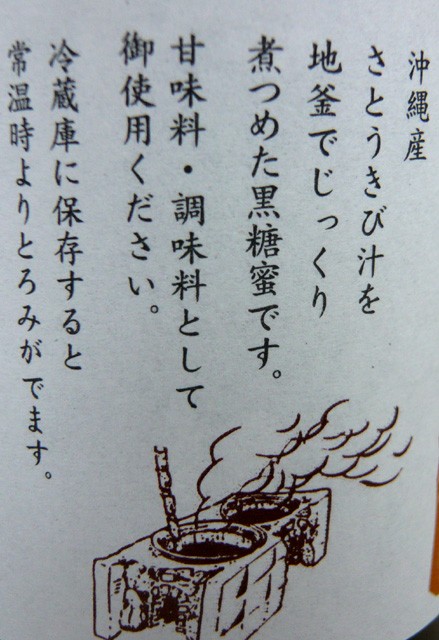 沖縄産
さとうきび汁を
地釜でじっくり
煮つめた黒糖蜜です。
甘味料・調味料として
御使用ください。
冷蔵庫に保存すると
常温時よりとろみがでます。